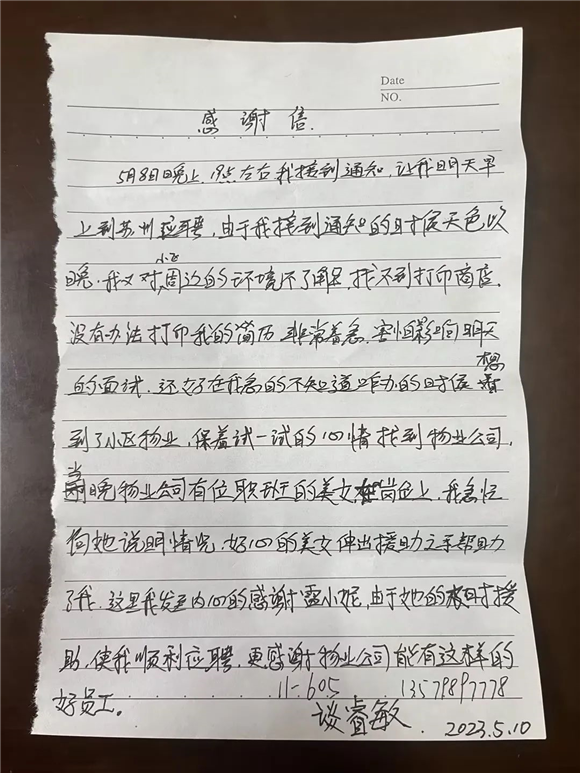 Date
NO.
感谢信.
5月8日晚上,19点左右我接到通知,让我明天早
上到苏州应聘,由于我接到通知的时侯天色以
晚.我又对小区周边的环境不了解,找不到打印商店.
没有办法打印我的简历 非常着急.害怕影响明天
的面试.还好在我急的不知道咋办的时侯 想
到了小区物业,保着试一试的心情找到物业公司,
当晚物业公司有位职班的美女在岗位上,我急忙
向她说明情况,好心的美女伸出援助之手帮助
了我.这里我发至内心的感谢雷小妮,由于她的及时援
助,使我顺利应聘,更感谢物业公司能有这样的
好员工。 11-605 13579897778
谈睿敏. 2023.5.10